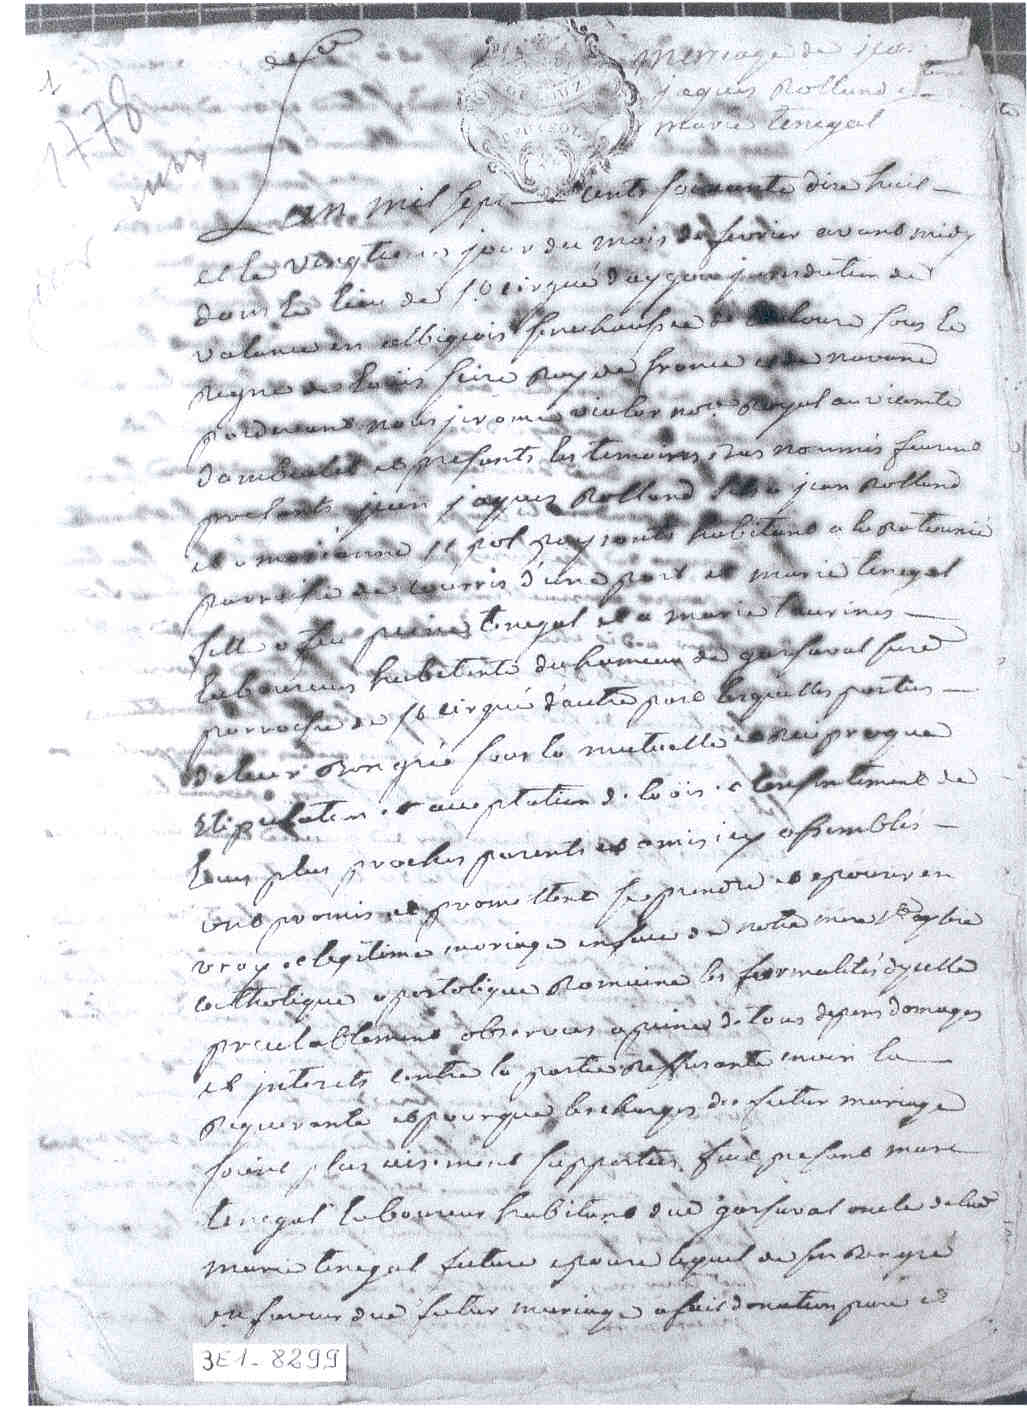 1
1778
mariage de jean
jaques Rolland et
marie Tenegal
Lan mil sept cents soixante dixe huit
et le vingtieme jour du mois de fevrier avant midy
dans le lieu de St cirgue d'aygou jurisdiction de
valance en albigeois senechaussée de toulouse sous le
regne de loüis seize Roy de france et de navarre
pardevant nous jerome vialar nore Royal au vicomté
dambialet et presents les temoins bas nommés furent
presents jean jaques Rolland fils a jean Rolland
et a marianne pol paysants habitans a la
parroisse de courris d'une part et marie Tenegal
fille a feu pierre Tenegal et a marie taurines
laboureurs habitante du hameau de garsaval susd
parroisse de St cirgue d'autre part lesquelles parties
de leur bon gré sous la mutuelle et reciproque
stipulation et acceptation de loüis et consentement de
leurs plus proches parents et amis icy assemblés
ont promis et promettent se prendre et epouser en
vray et legitime mariage en face de notre mere Ste eglise
catholique apostolique Romaine les formalités d'ycelle
prealablement observées a peine de tous depens domages
et interets contre la partie Refusante envers la
Requerante et pour que les charges du futur mariage
soient plus aisement supportées fut present marc
Tenegal laboureur habitant dud garsaval oncle de lad
marie Tenegal future epouse lequel de son bon gré
en faveur dud futur mariage a fait donation pure et
3E1-8299